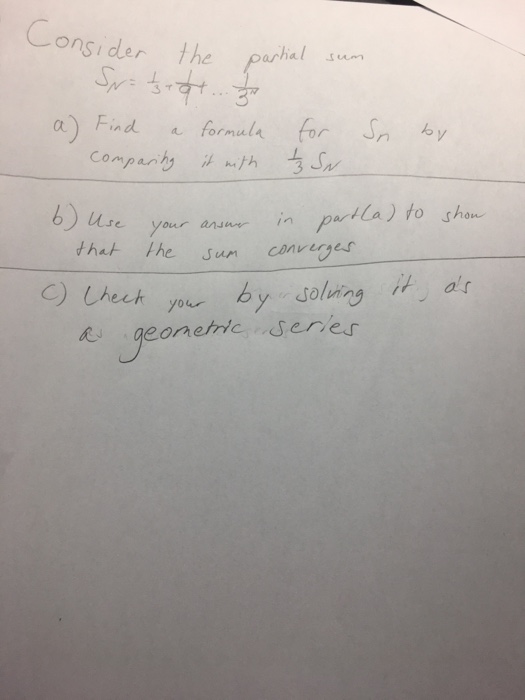 Consider the partial sum
S_N = 1/3 + 1/9 + ... 1/3^N
a) Find a formula for Sn by
comparing it with 1/3 S_N
b) Use your answer in part(a) to show
that the sum converges
c) Check your by solving it as
a geometric series